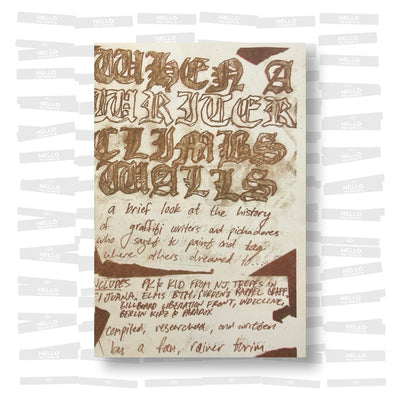 WHEN A
WRITER
CLIMBS
WALLS
a brief look at the history
of graffiti writers and pichadores
who sought to paint and tag
where others dreamed to...
INCLUDES PK & KID FROM NJ, TREPES IN
TIJUANA, ELMS
BILLBOARD LIBERATION FRONT, INDECLINE,
BERLIN KIDZ & PARADOX
compiled, researched, and written
by a fan, rainer turim
HELLO